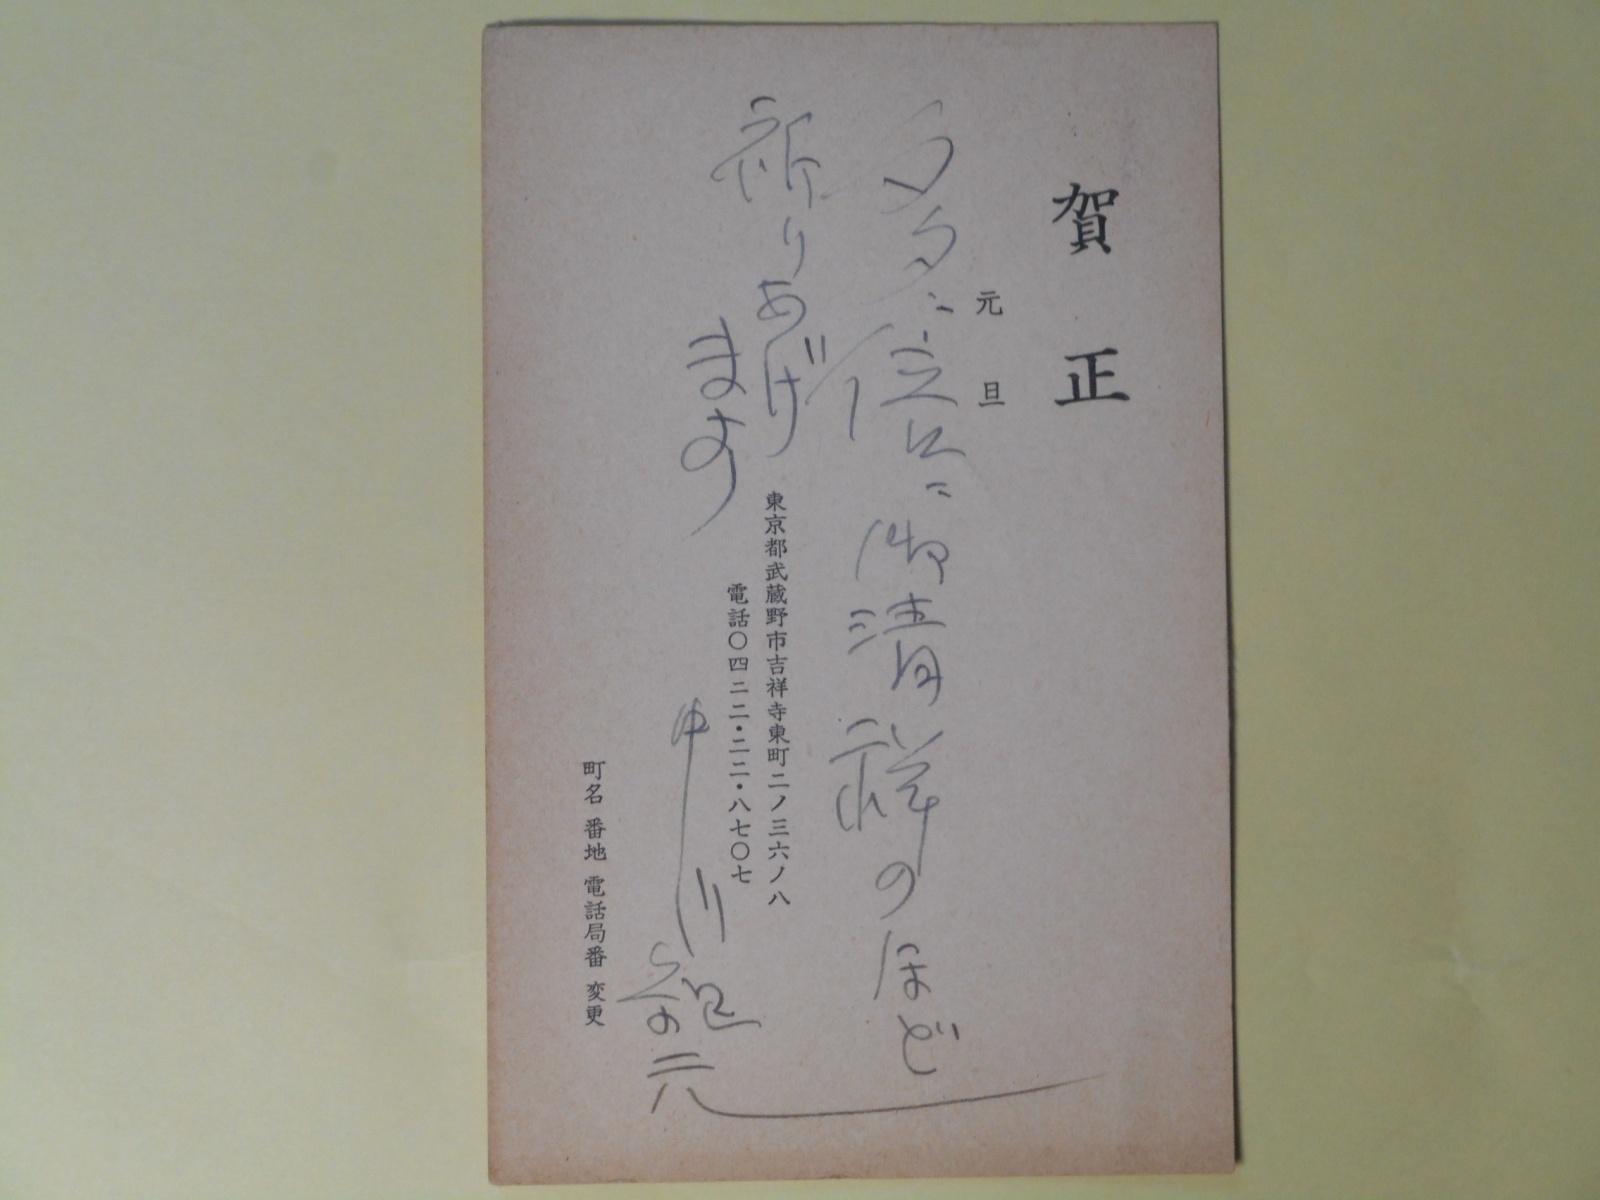 賀正
元旦
倍に御清祥のほど
祈りあげ
ます
東京都武蔵野市吉祥寺東町二ノ三六ノ八
電話〇四二二・二二・八七〇七
中川紀元
町名 番地 電話局番 変更